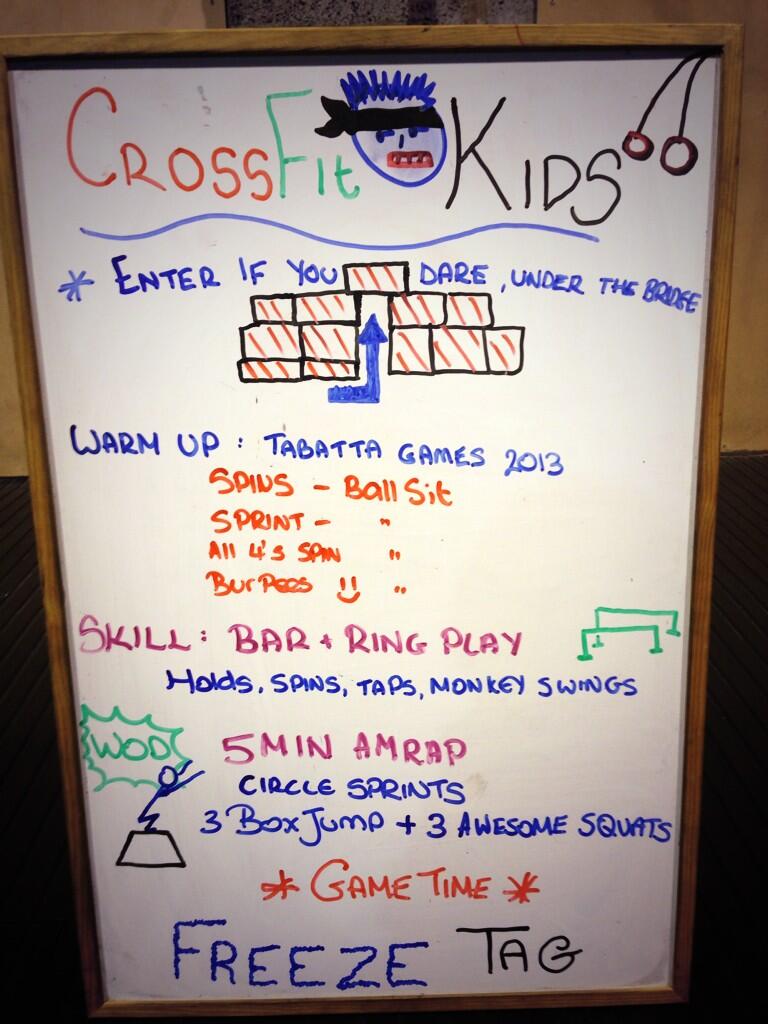 CROSSFit KIDS
* ENTER IF YOU DARE, UNDER THE BRIDGE
WARM UP : TABATTA GAMES 2013
SPINS - Ball Sit
SPRINT - "
All 4's SPIN "
BurPees !! "
SKILL: BAR + RING PLAY
Holds, SPINS, TAPS, MONKEY SWINGS
WOD 5 MIN AMRAP
CIRCLE SPRINTS
3 Box Jump + 3 AWESOME SQUATS
* GAME TIME *
FREEZE TAG